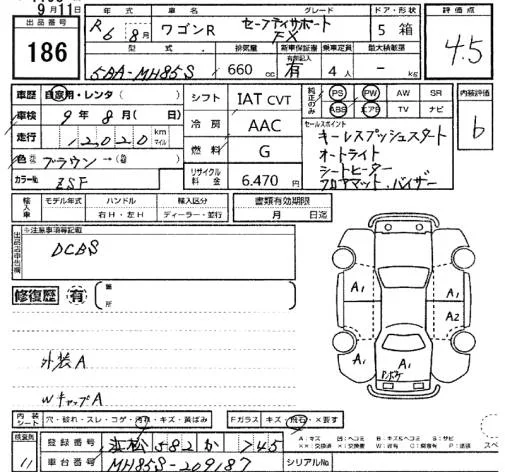 9月11日
出品番号
186
年式 車名 グレード ドア・形状 評価点
R6年8月 ワゴンR セーフティサポート FX 5 箱 4.5
型式 排気量 新車保証書 乗車定員 最大積載量
5BA-MH85S 660cc 有 4人 - kg
車歴 自家用・レンタ( )
車検 9年8月( 日)
走行 12020 km マイル
色 ブラウン→( )
カラーNo. ZSF
シフト IAT CVT
冷房 AAC
燃料 G
リサイクル料金 6.470円
純正のみ PS PW AW SR
ABS エアB TV ナビ
セールスポイント
キーレスプッシュスタート
オートライト
シートヒーター
フロアマット.バイザー
内装評価
b
輸入車 モデル年式 ハンドル 輸入区分 書類有効期限
年 右H・左H ディーラー・並行 月 日迄
※注意事項等記載
DCBS
修復歴 有 箇所
外装A
WキャップA
A1 A1 A2 A1 A1 A1
内装シート 穴・破れ・スレ・コゲ・汚れ・キズ・黄ばみ
Fガラス キズ・飛石・×要す
検査員 11
登録番号 浜松582か745
車台番号 MH85S-209187
シリアルNo.